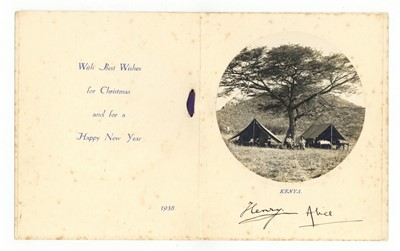 With Best Wishes
for Christmas
and for a
Happy New Year
1938
KENYA.
Henry Alice